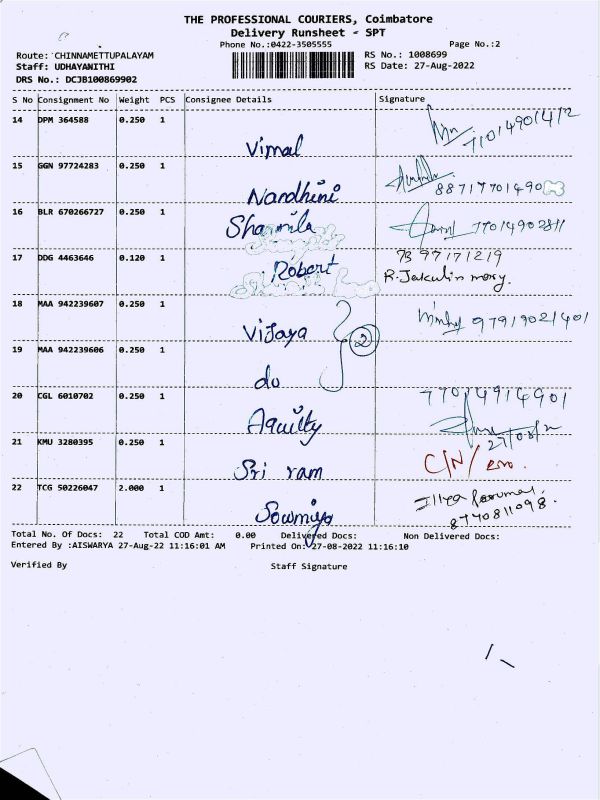 THE PROFESSIONAL COURIERS, Coimbatore
Delivery Runsheet - SPT
Phone No.:0422-3505555
Page No.:2
Route: CHINNAMETTUPALAYAM
RS No.: 1008699
Staff: UDHAYANITHI
RS Date: 27-Aug-2022
DRS No.: DCJB100869902
S No Consignment No Weight PCS Consignee Details Signature
14 DPM 364588 0.250 1
Vimal
15 GGN 97724283 0.250 1
Nandhini
16 BLR 670266727 0.250 1
Sharmila 77014902811
17 DDG 4463646 0.120 1
Robert
R. Jakulin mary.
18 MAA 942239607 0.250 1
Vijaya 97919021401
2
19 MAA 942239606 0.250 1
do
20 CGL 6010702 0.250 1
Aquilty
77014914901
21 KMU 3280395 0.250 1
Sri ram C/N/
22 TCG 50226047 2.000 1
Sowmiya
8770811098.
Total No. Of Docs: 22 Total COD Amt: 0.00 Delivered Docs: Non Delivered Docs:
Entered By :AISWARYA 27-Aug-22 11:16:01 AM Printed On:27-08-2022 11:16:10
Verified By Staff Signature